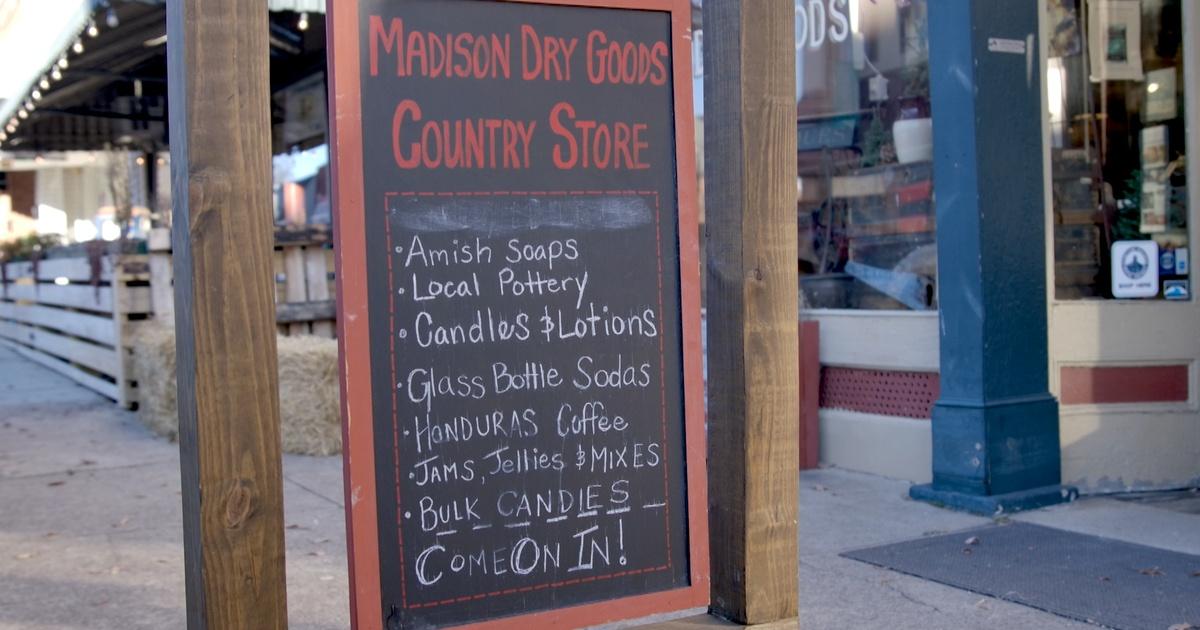 MADISON DRY GOODS
COUNTRY STORE
• Amish soaps
• Local Pottery
• Candles & Lotions
• Glass Bottle Sodas
• HONDURAS Coffee
• JAMS, Jellies & MIXES
• BULK CANDIES
COME ON IN!
ODS
SHOP HERE